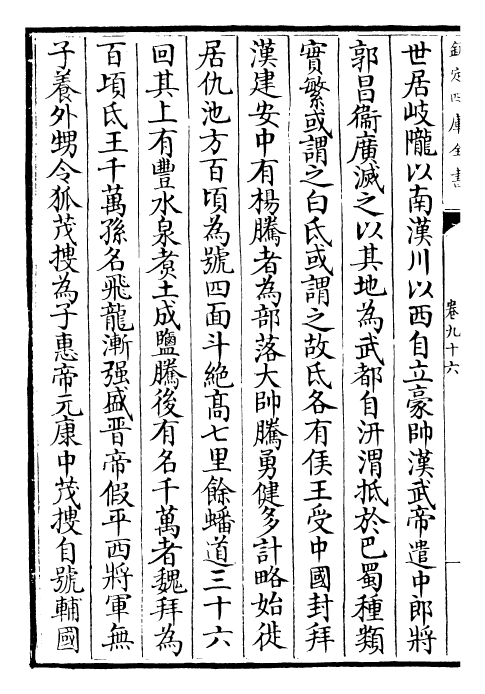 欽定四庫全書
卷九十六
世居岐隴以南漢川以西自立豪帥漢武帝遣中郎將
郭昌衞廣滅之以其地為武都自汧渭抵於巴蜀種類
實繁或謂之白氐或謂之故氐各有侯王受中國封拜
漢建安中有楊騰者為部落大帥騰勇健多計略始徙
居仇池方百頃為號四面斗絶髙七里餘蟠道三十六
回其上有豐水泉煑土成鹽騰後有名千萬者魏拜為
百頃氐王千萬孫名飛龍漸强盛晉帝假平西將軍無
子養外甥令狐茂搜為子惠帝元康中茂搜自號輔國